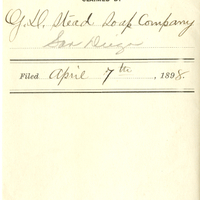 CLAIMED BY
G. D. Stead Soap Company
San Diego
Filed April 7th, 1898.